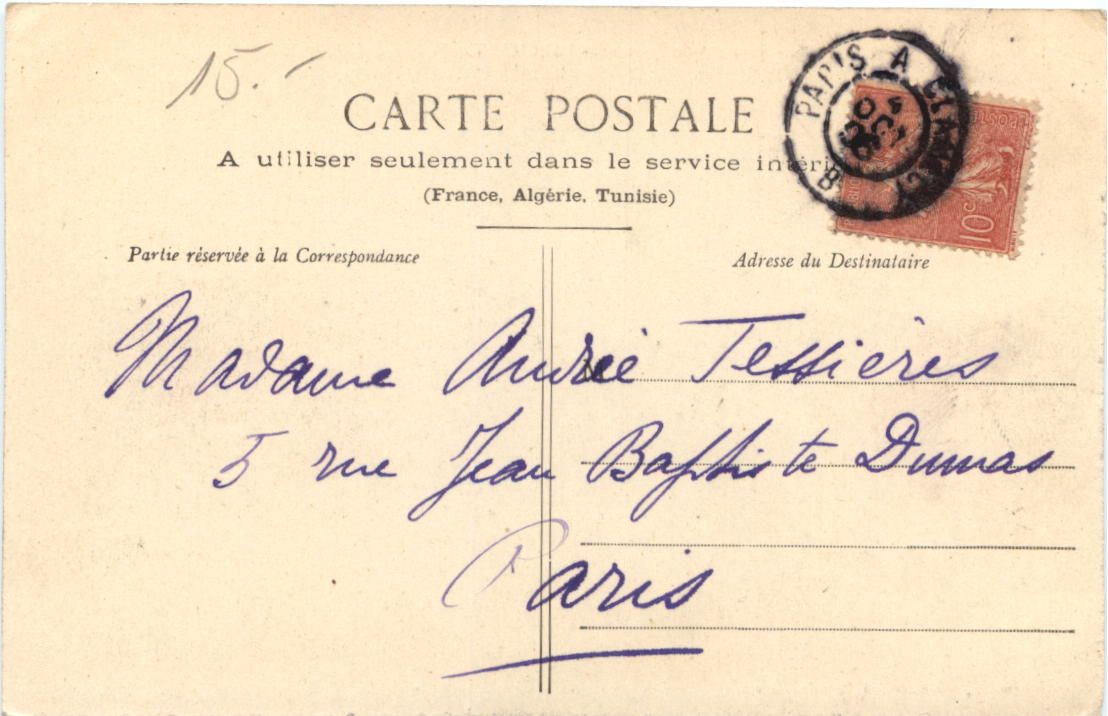 15.-
CARTE POSTALE
A utiliser seulement dans le service intéri
(France, Algérie, Tunisie)
PARIS A
10c
Partie réservée à la Correspondance
Adresse du Destinataire
Madame André Tessières
5 rue Jean Baptiste Dumas
Paris